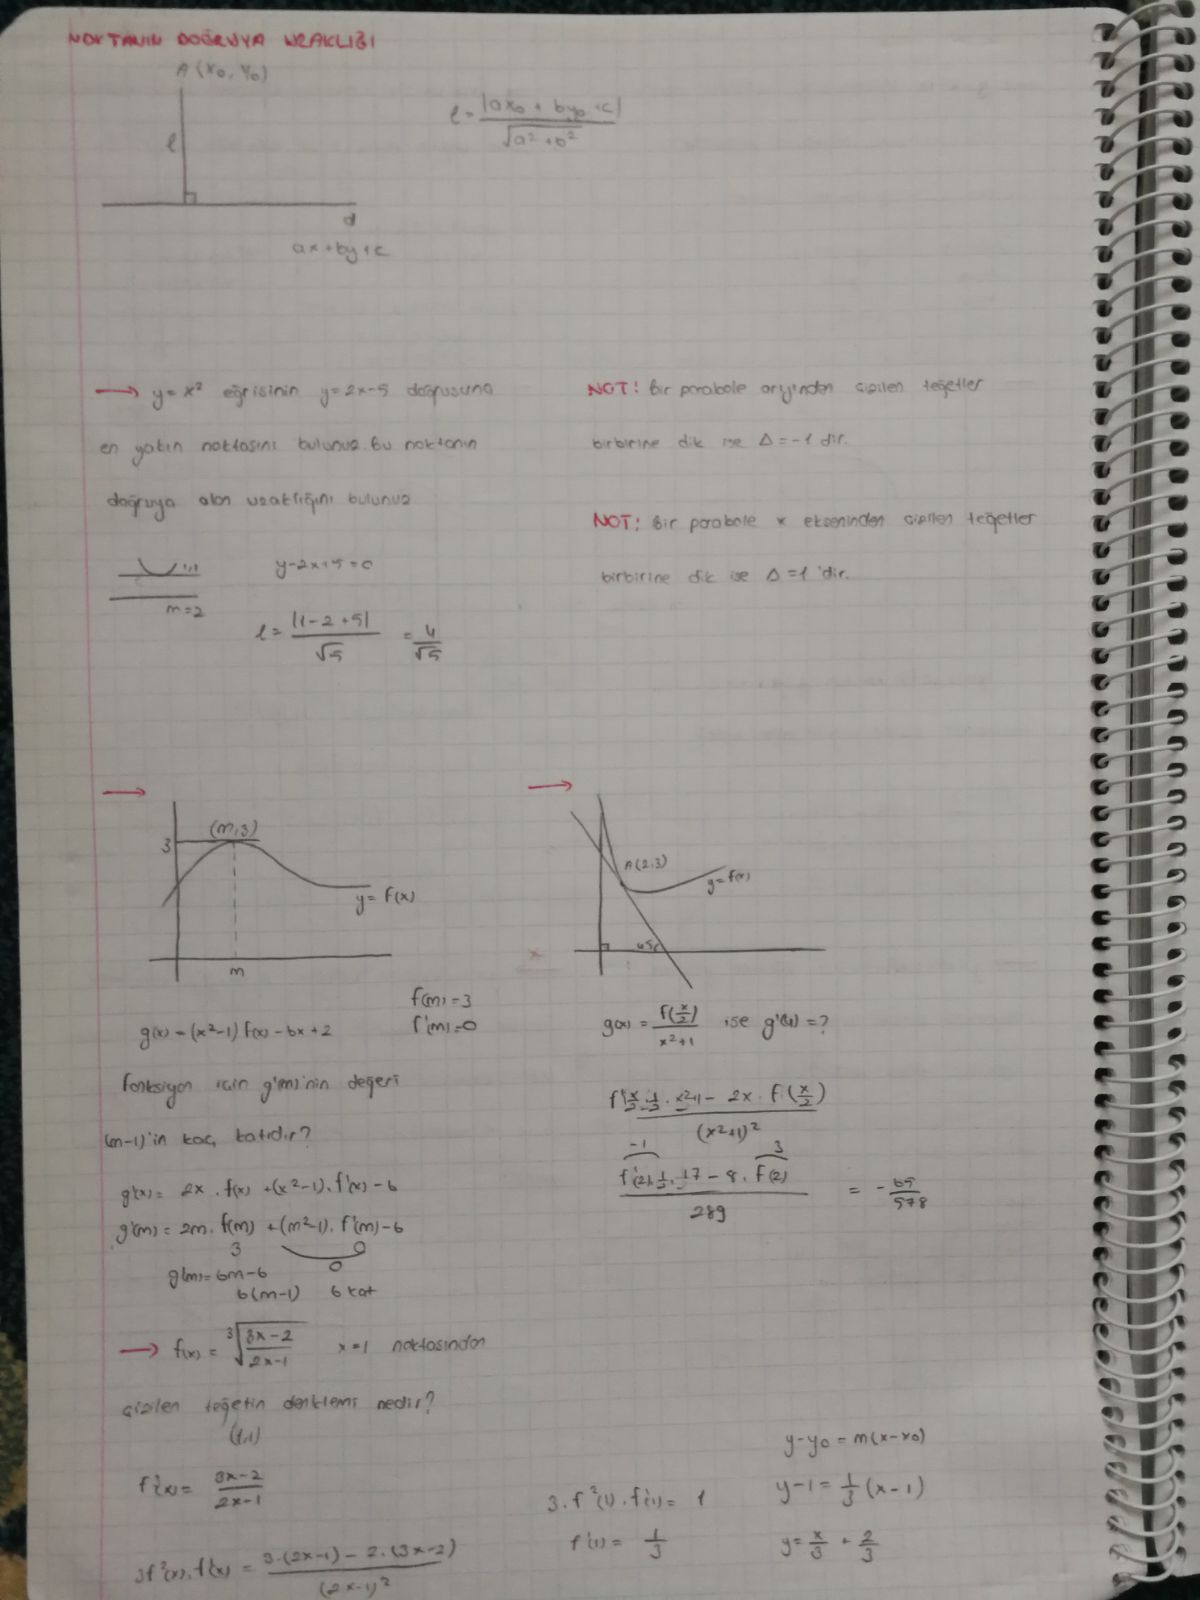 NOKTANIN DOĞRUYA UZAKLIĞI
A(x₀, y₀)
l
d
ax+by+c
l = |ax₀ + by₀ + c| / √(a² + b²)
→ y = x² eğrisinin y = 2x-5 doğrusuna
en yakın noktasını bulunuz. bu noktanın
doğruya olan uzaklığını bulunuz
1,1
m=2
y-2x+5=0
l = |1-2+5| / √5 = 4/√5
NOT: Bir parabole orijinden çizilen teğetler
birbirine dik ise Δ = -1 dir.
NOT: Bir parabole x ekseninden çizilen teğetler
birbirine dik ise Δ = 1 'dir.
→
3
(m,3)
y = f(x)
m
f(m) = 3
f'(m) = 0
g(x) = (x²-1) f(x) - 6x + 2
fonksiyon için g'(m)'nin değeri
(m-1)'in kaç katıdır?
g'(x) = 2x . f(x) + (x²-1) . f'(x) - 6
g'(m) = 2m . f(m) + (m²-1) . f'(m) - 6
3 0
0
g'(m) = 6m-6
6(m-1) 6 kat
→
A(2,3)
y = f(x)
45
g(x) = f(x/2) / x²+1 ise g'(4) = ?
f' x/2 . 1/2 . x²+1 - 2x . f(x/2) / (x²+1)²
-1 3
f'(2) . 1/2 . 17 - 8 . f(2) / 289 = - 65/578
→ f(x) = ³√(3x-2 / 2x-1) x=1 noktasından
çizilen teğetin denklemi nedir?
(1,1)
f³(x) = 3x-2 / 2x-1
3f²(x) . f'(x) = 3.(2x-1) - 2.(3x-2) / (2x-1)²
3 . f²(1) . f'(1) = 1
f'(1) = 1/3
y-y₀ = m(x-x₀)
y-1 = 1/3 (x-1)
y = x/3 + 2/3